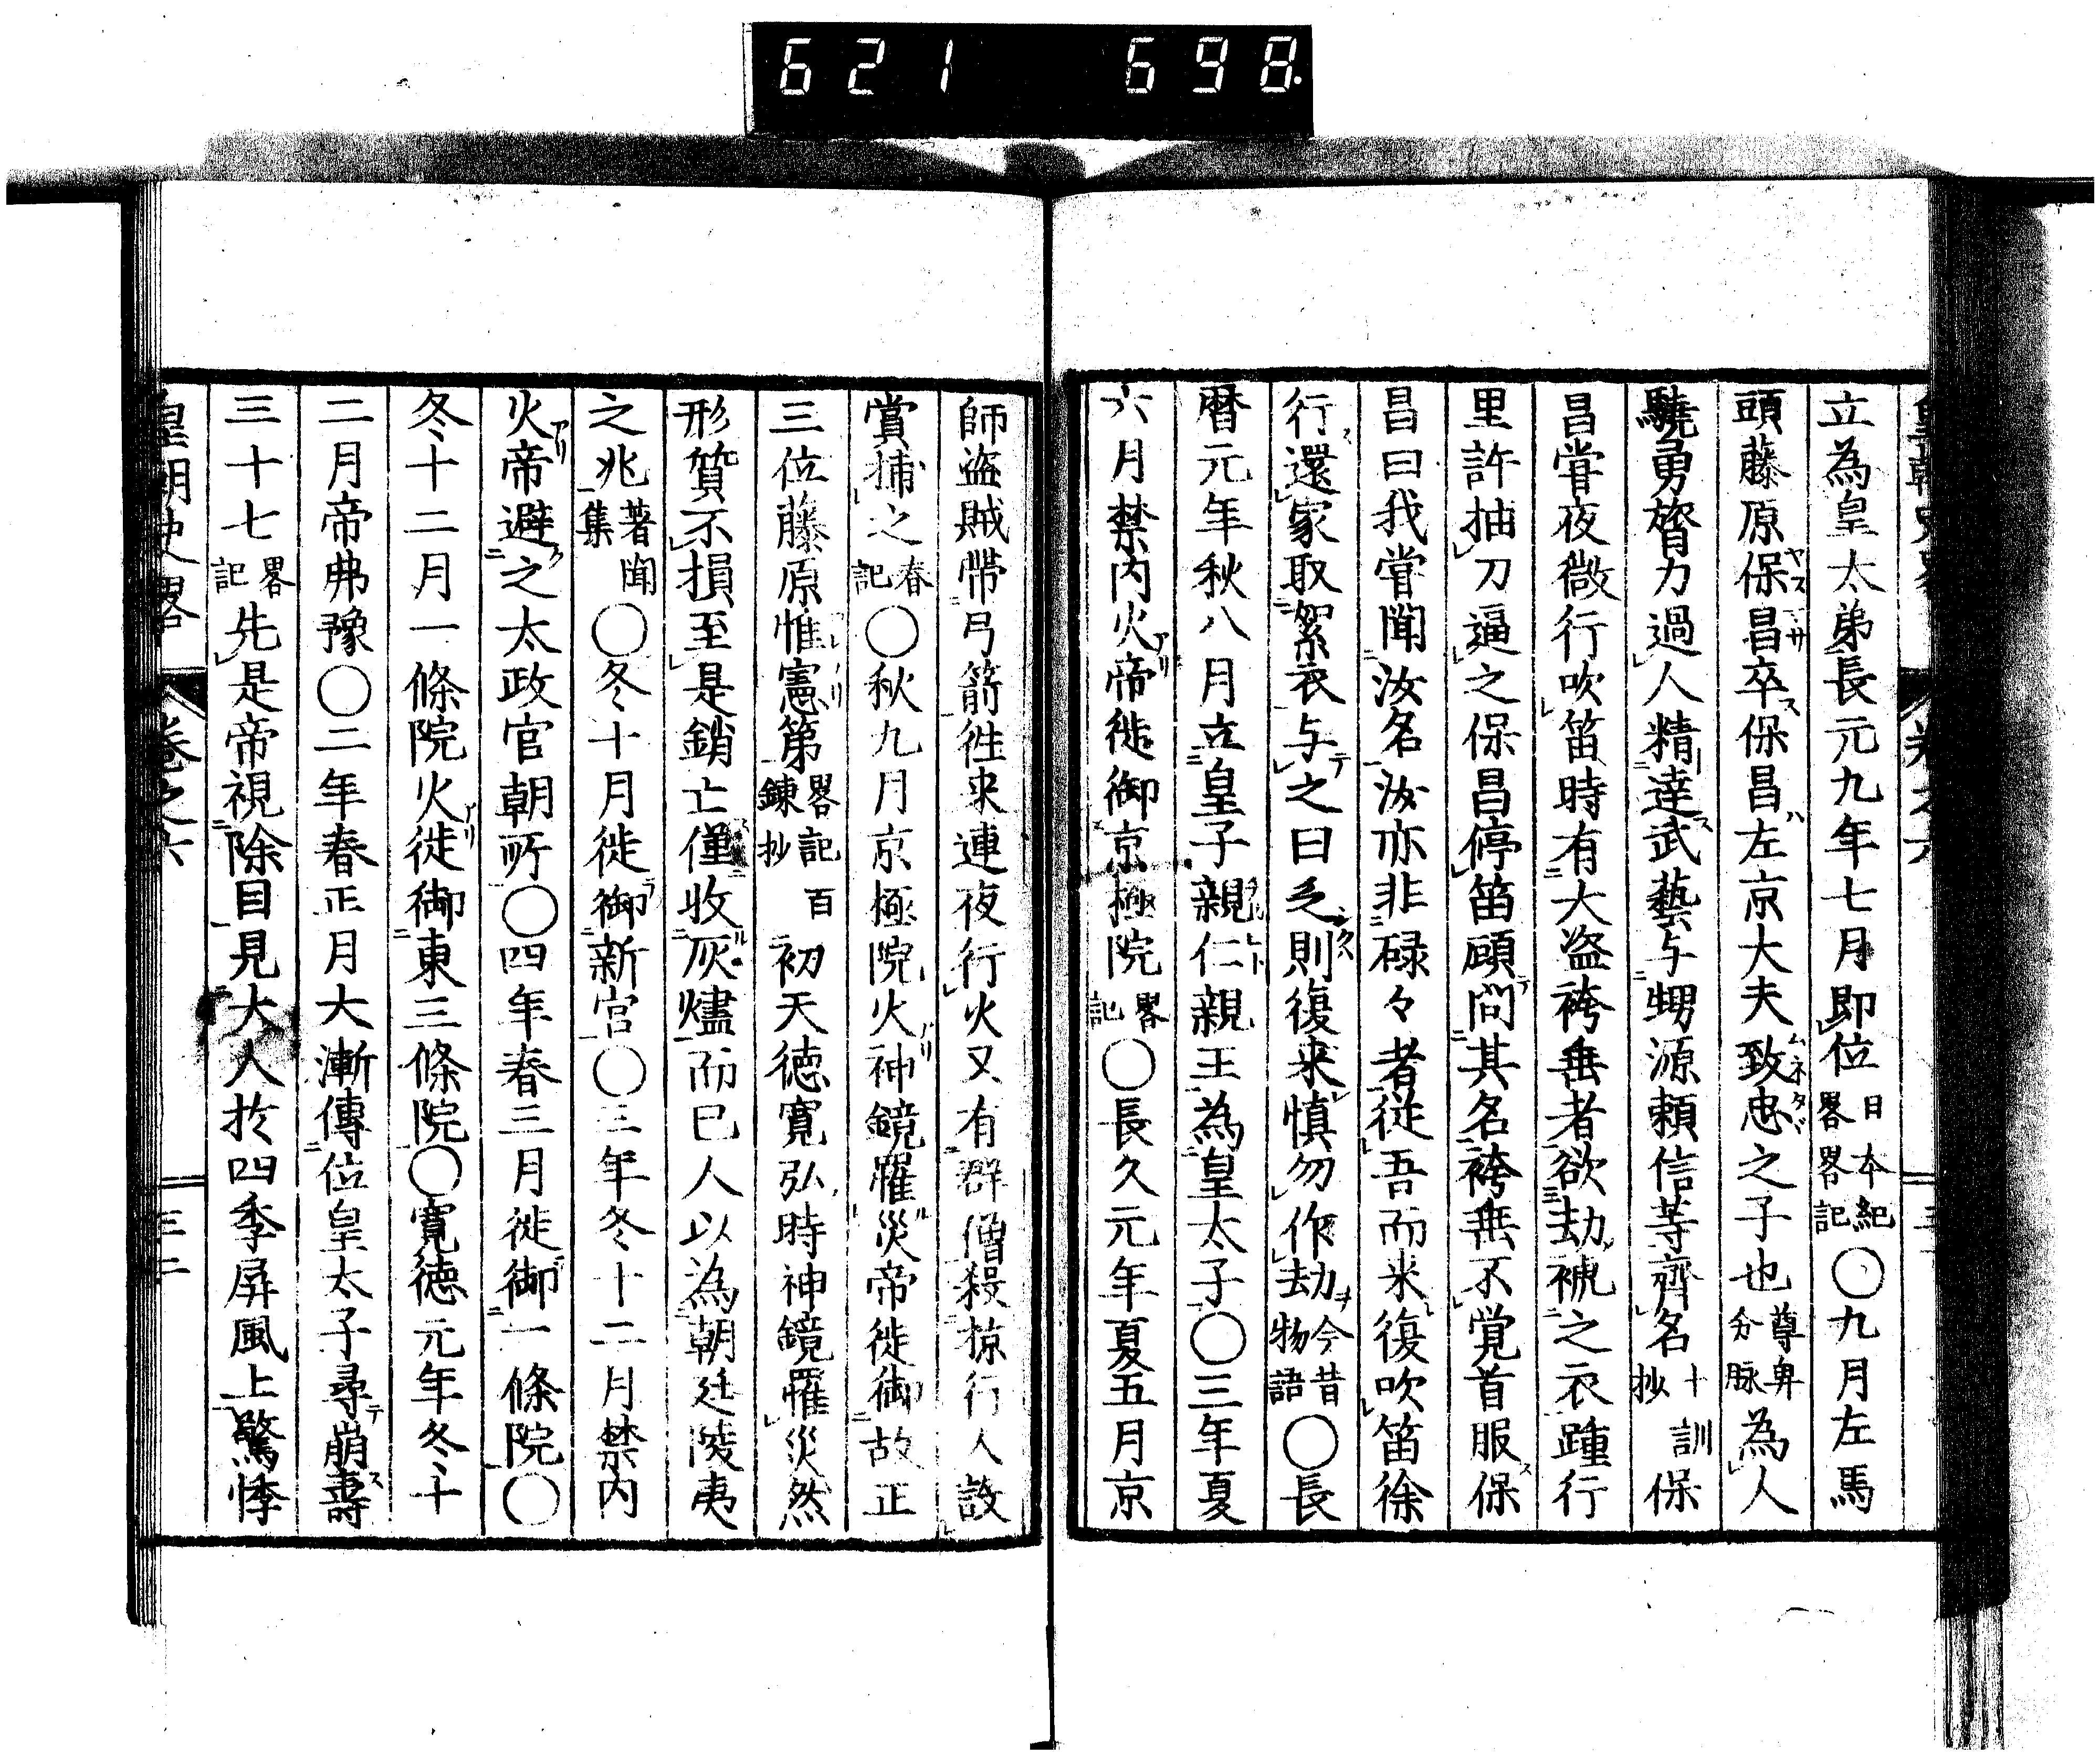 621 698
立為皇太弟長元九年七月即位日本紀畧畧記〇九月左馬
頭藤原保昌卒保昌左京大夫致忠之子也尊卑分脉為人
驍勇膂力過人精達武藝与甥源頼信等齊名十訓抄保
昌嘗夜微行吹笛時有大盗袴垂者欲劫褫之衣踵行
里許抽刀逼之保昌停笛顧問其名袴垂不覚首服保
昌曰我嘗聞汝名汝亦非碌々者従吾而来復吹笛徐
行還家取絮衣与之曰乏則復来慎勿作劫今昔物語〇長
暦元年秋八月立皇子親仁親王為皇太子〇三年夏
六月禁内火帝徙御京極院畧記〇長久元年夏五月京
師盗賊帶弓箭徃来連夜行火又有群僧殺掠行人設
賞捕之春記〇秋九月京極院火神鏡罹災帝徙御故正
三位藤原惟憲第畧記百錬抄初天徳寛弘時神鏡罹災然
形質不損至是銷亡僅收灰燼而已人以為朝廷陵夷
之兆著聞集〇冬十月徙御新宮〇三年冬十二月禁内
火帝避之太政官朝所〇四年春三月徙御一條院〇
冬十二月一條院火徙御東三條院〇寛徳元年冬十
二月帝弗豫〇二年春正月大漸傳位皇太子尋崩壽
三十七畧記先是帝視除目見大人於四季屏風上驚悸
皇朝史畧 巻之六 三十二